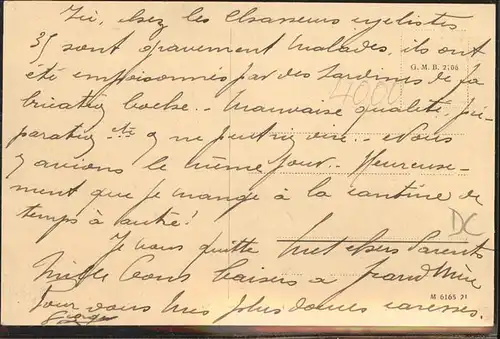 Ici, chez les Chasseurs cyclistes
35 sont gravement malades, ils ont
été empoisonnés par des sardines de fa
G. M. B. 2706
4000
brication boche. - Mauvaise qualité, pré-
paration etc
Nous
avions le même jour. - Heureuse-
ment que je mange à la cantine de
temps à autre!
DC
Je vous quitte
chers Parents
Mille bons baisers à grand Mère
Pour vous mes plus douces caresses.
M 6165 21
Georges